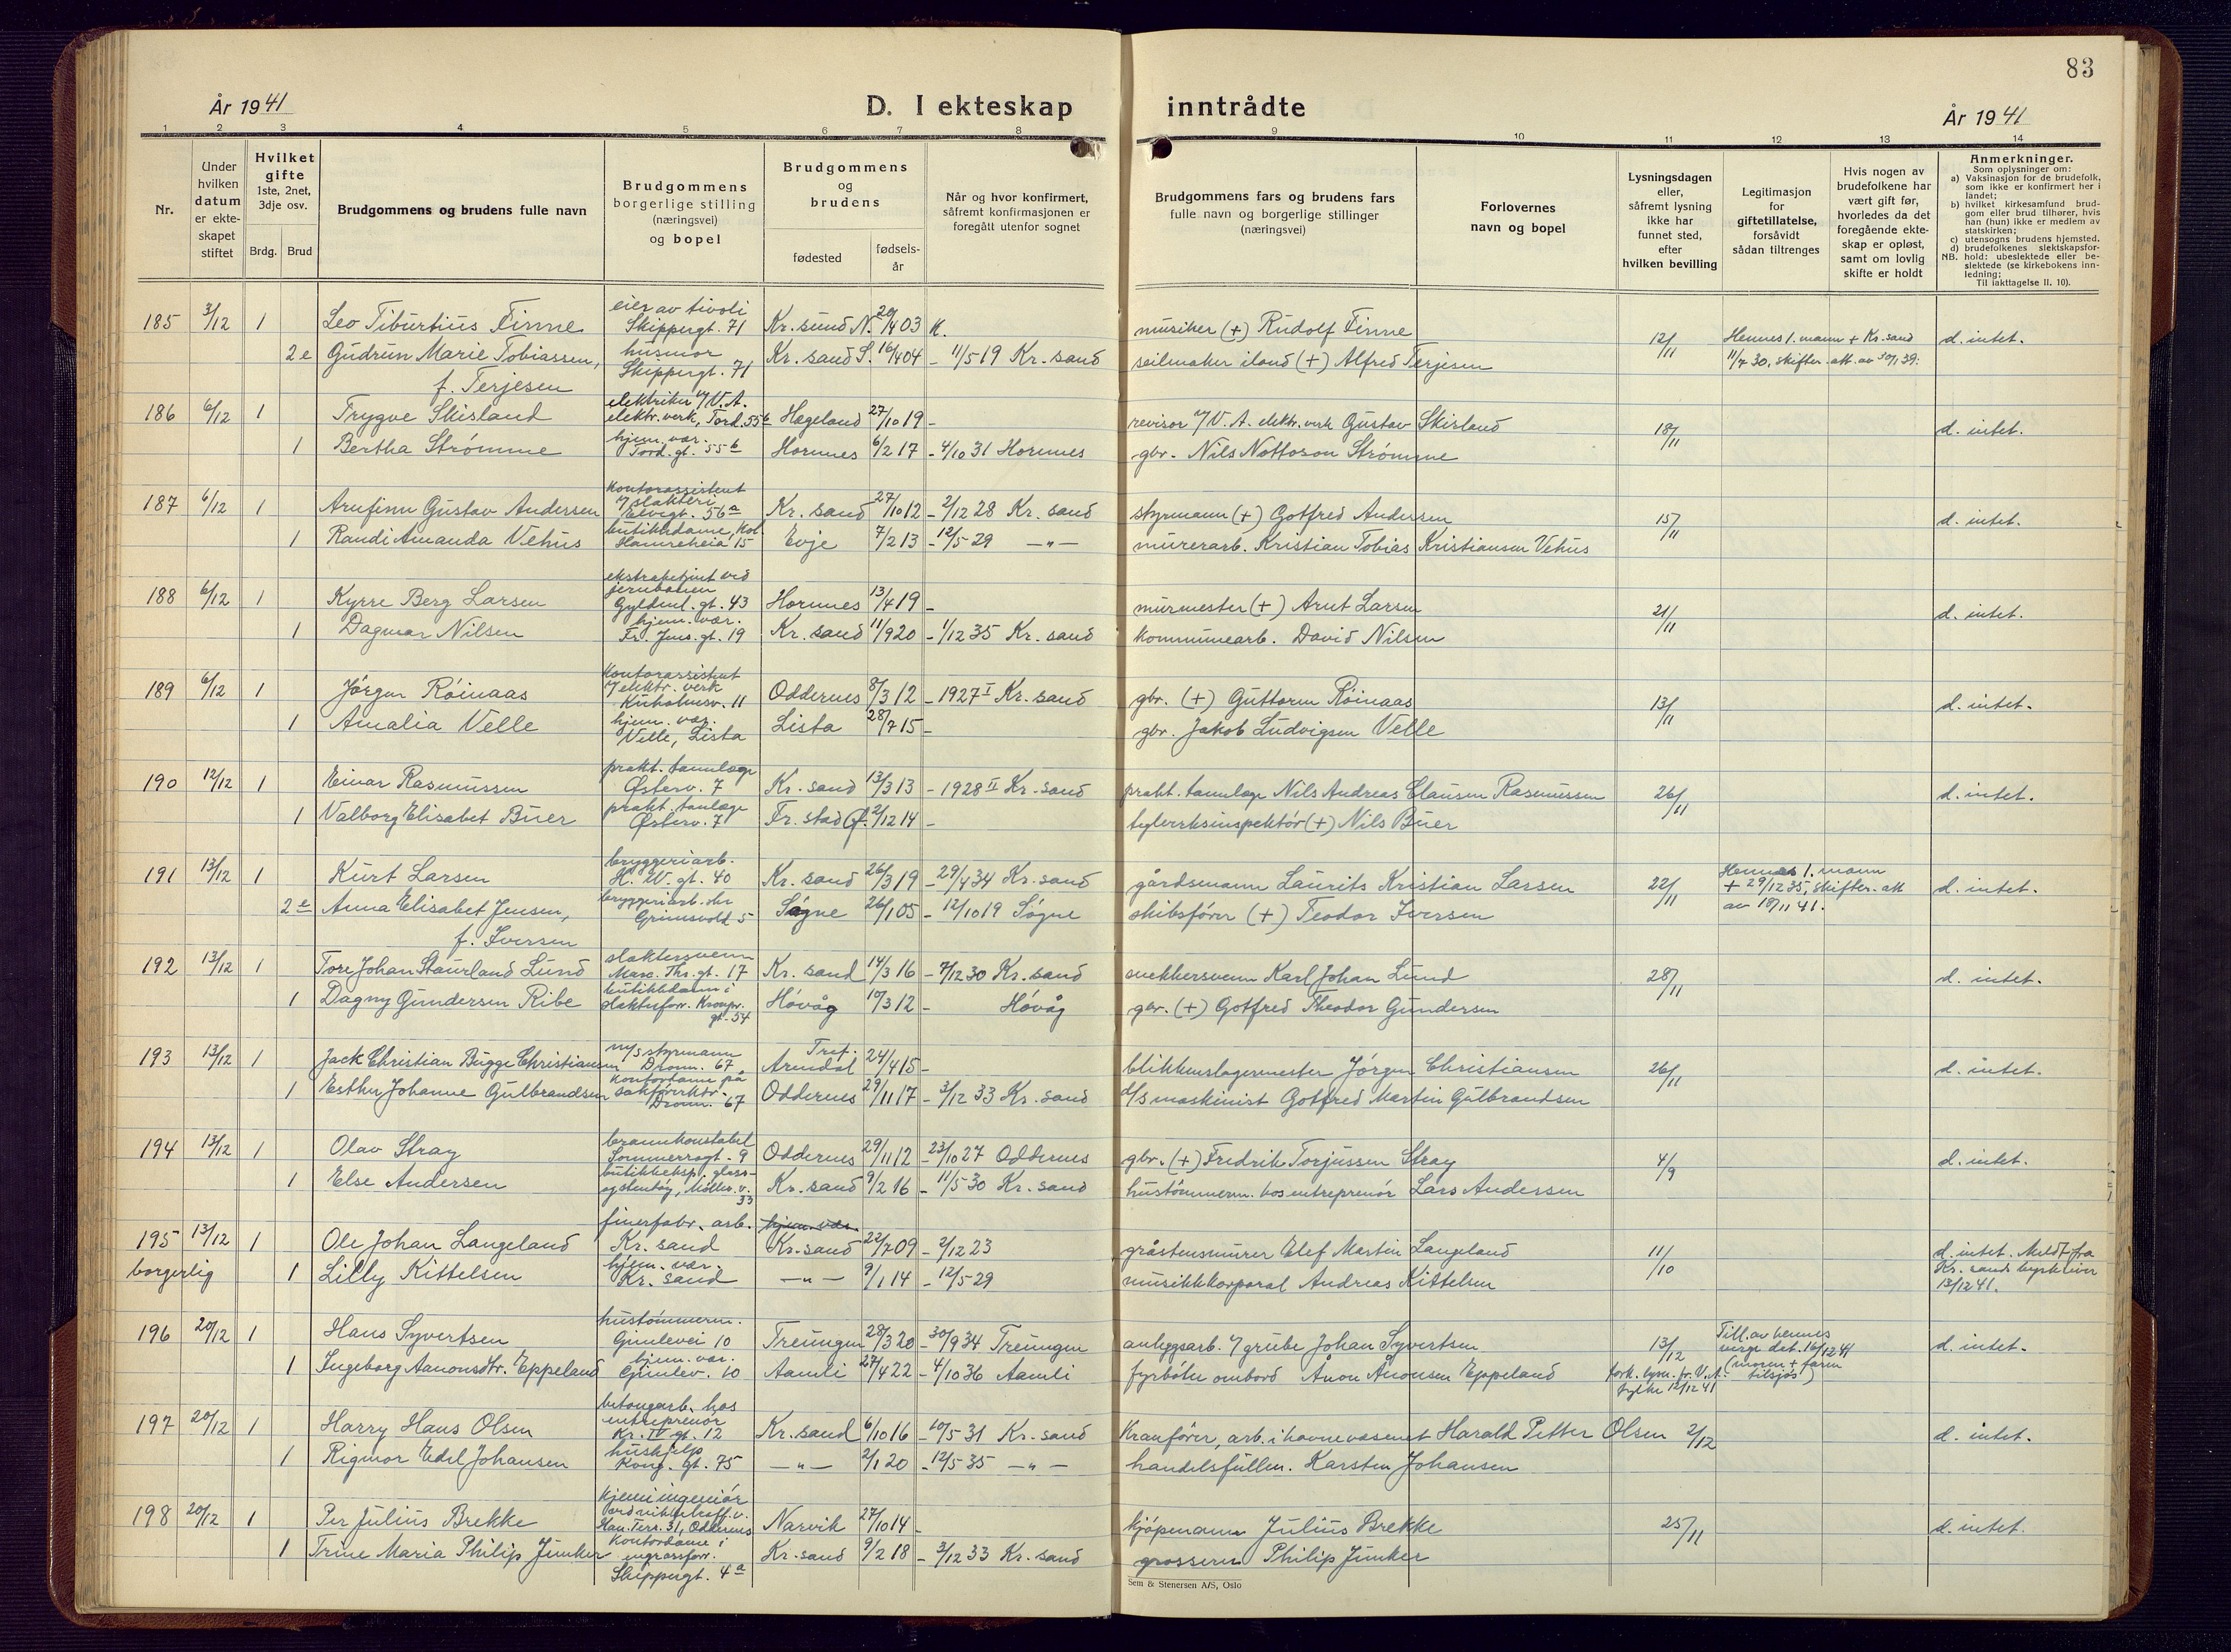 83
År 1941
D. I ekteskap inntrådte
År 1941
1 2 3 4 5 6 7 8 9 10 11 12 13 14
Nr.
Under hvilken datum er ekte-skapet stiftet
Hvilket gifte 1ste, 2net, 3dje osv.
Brdg. Brud
Brudgommens og brudens fulle navn
Brudgommens borgerlige stilling (næringsvei) og bopel
Brudgommens og brudens
fødested fødsels-år
Når og hvor konfirmert, såfremt konfirmasjonen er foregått utenfor sognet
Brudgommens fars og brudens fars fulle navn og borgerlige stillinger (næringsvei)
Forlovernes navn og bopel
Lysningsdagen eller, såfremt lysning ikke har funnet sted, efter hvilken bevilling
Legitimasjon for giftetillatelse, forsåvidt sådan tiltrenges
Hvis nogen av brudefolkene har vært gift før, hvorledes da det foregående ekte-skap er opløst, samt om lovlig skifte er holdt
Anmerkninger.
Som oplysninger om:
a) Vaksinasjon for de brudefolk, som ikke er konfirmert her i landet;
b) hvilket kirkesamfund brud-gom eller brud tilhører, hvis han (hun) ikke er medlem av statskirken;
c) utensogns brudens hjemsted.
d) brudefolkenes slektskapsfor-hold: ubeslektede eller be-slektede (se kirkebokens inn-ledning;
NB. Til iakttagelse II. 10).
185 3/12 1 Leo Tiburtius Finne eier av tivoli Skippergt. 71 Kr.sund N. 20/4 03 K. musiker (+) Rudolf Finne 12/11 Hennes 1. mann + Kr.sand d. intet.
2e Gudrun Marie Tobiassen, f. Terjesen husmor Skippergt. 71 Kr.sand S. 16/4 04 - 11/5 19 Kr.sand seilmaker iland (+) Alfred Terjesen 11/7 30, skifter.att. av 30/1 39.
186 6/12 1 Trygve Skisland elektriker v/V.A. elektr.verk, Tord. 55b Hægeland 27/10 19 - revisor v/V.A. elektr.verk Gustav Skisland 18/11 d. intet.
1 Bertha Strømme hjem. vær. Tord.gt. 55b Hornnes 6/2 17 - 4/10 31 Hornnes gbr. Nils Nottoson Strømme
187 6/12 1 Arnfinn Gustav Andersen Kontorassistent v/slakteri Elvegt. 56a Kr.sand 27/10 12 - 2/12 28 Kr.sand styrmann (+) Gotfred Andersen 15/11 d. intet.
1 Randi Amanda Vehus butikkdame, Kol. Hamreheia 15 Evje 7/2 13 - 12/5 29 -"- murerarb. Kristian Tobias Kristiansen Vehus
188 6/12 1 Kyrre Berg Larsen ekstrabetjent ved jernbanen Gyldenl.gt. 43 Hornnes 13/4 19 - murmester (+) Arnt Larsen 21/11 d. intet.
1 Dagmar Nilsen hjem. vær. Fr. Jms.gt. 19 Kr.sand 11/9 20 - 1/12 35 Kr.sand kommunearb. David Nilsen
189 6/12 1 Jørgen Røinaas Kontorassistent v/elektr.verk Kuholmsv. 11 Oddernes 8/3 12 - 1927 I Kr.sand gbr. (+) Guttorm Røinaas 13/11 d. intet.
1 Amalia Velle hjem. vær. Velle, Lista Lista 28/7 15 - gbr. Jakob Ludvigsen Velle
190 12/12 1 Einar Rasmussen prakt. tannlæge Østerv. 7 Kr.sand 13/3 13 - 1928 II Kr.sand prakt. tannlæge Nils Andreas Clausen Rasmussen 26/11 d. intet.
1 Valborg Elisabet Buer prakt. tanlæge Østerv. 7 Fr.stad Ø. 2/12 14 - teglverksinspektør (+) Nils Buer
191 13/12 1 Kurt Larsen bryggeriarb. H. W. gt. 40 Kr.sand 26/3 19 - 29/4 34 Kr.sand gårdsmann Laurits Kristian Larsen 22/11 Hennes 1. mann + 29/12 35, skifter.att av 18/11 41. d. intet.
2e Anna Elisabet Jensen, f. Iversen bryggeriarb.ske Grimsvold 5 Søgne 26/1 05 - 12/10 19 Søgne skibsfører (+) Teodor Iversen
192 13/12 1 Tore Johan Staurland Lund slaktersvenn Marc. Thr.gt. 17 Kr.sand 14/3 16 - 7/12 30 Kr.sand snekkersvenn Karl Johan Lund 28/11 d. intet.
1 Dagny Gundersen Ribe butikkdame i slakterforr. Kronpr.gt. 54 Høvåg 10/3 12 - Høvåg gbr. (+) Gotfred Theodor Gundersen
193 13/12 1 Jack Christian Bugge Christiansen m/s styrmann Dronn. 67 Tref. Arendal 24/4 15 - blikkenslagermester Jørgen Christiansen 26/11 d. intet.
1 Esther Johanne Gulbrandsen Kontordame på sakførerktr. Dronn. 67 Oddernes 29/11 17 - 3/12 33 Kr.sand d/s maskinist Gotfred Martin Gulbrandsen
194 13/12 1 Olav Stray brannkonstabel Sommerrogt. 9 Oddernes 29/11 12 - 23/10 27 Oddernes gbr. (+) Fredrik Torjussen Stray 4/9 d. intet.
1 Else Andersen butikkeksp. glass- og stentøj, Møller.v. 33 Kr.sand 9/2 16 - 11/5 30 Kr.sand hustømmerm. hos entreprenør Lars Andersen
195 13/12 1 Ole Johan Langeland finerfabr. arb. Kr.sand hjem. vær. Kr.sand 22/7 09 - 2/12 23 gråstensmurer Elef Martin Langeland 11/10 d. intet. Meldt fra Kr.sands byskriver 13/12 41.
borgerlig 1 Lilly Kittelsen hjem. vær. Kr.sand -"- 9/1 14 - 12/5 29 musikkkorporal Andreas Kittelsen
196 20/12 1 Hans Syvertsen hustømmerm. Gimlevei 10 Treungen 28/3 20 - 30/9 34 Treungen anleggsarb. v/grube Johan Syvertsen 13/12 Till. av hennes verge det. 16/12 41 (morm + farm tilsjøs) d. intet.
1 Ingeborg Aanonsdtr. Eppeland hjem. vær. Gimlev. 10 Aamli 27/4 22 - 4/10 36 Aamli fyrbøter ombord Ånon Ånonsen Eppeland fork. lysn. fr. V.A. fylke 12/12 41
197 20/12 1 Harry Hans Olsen betongarb. hos entreprenør Kr. IV gt. 12 Kr.sand 6/10 16 - 10/5 31 Kr.sand Kranfører, arb. i havnevæsenet Harald Petter Olsen 2/12 d. intet.
1 Rigmor Edel Johansen hushjelp Kong. gt. 75 -"- 2/1 20 - 12/5 35 -"- handelsfullm. Karsten Johansen
198 20/12 1 Per Julius Brekke Kjemiingeniør ved nikkelraff.v. Han. Terr. 31, Oddernes Narvik 27/10 14 - kjøpmann Julius Brekke 25/11 d. intet.
1 Trine Maria Philip Junker Kontordame i engrosforr. Skippergt. 4a Kr.sand 9/2 18 - 3/12 33 Kr.sand grosserer Philip Junker
Sem & Stenersen A/S, Oslo